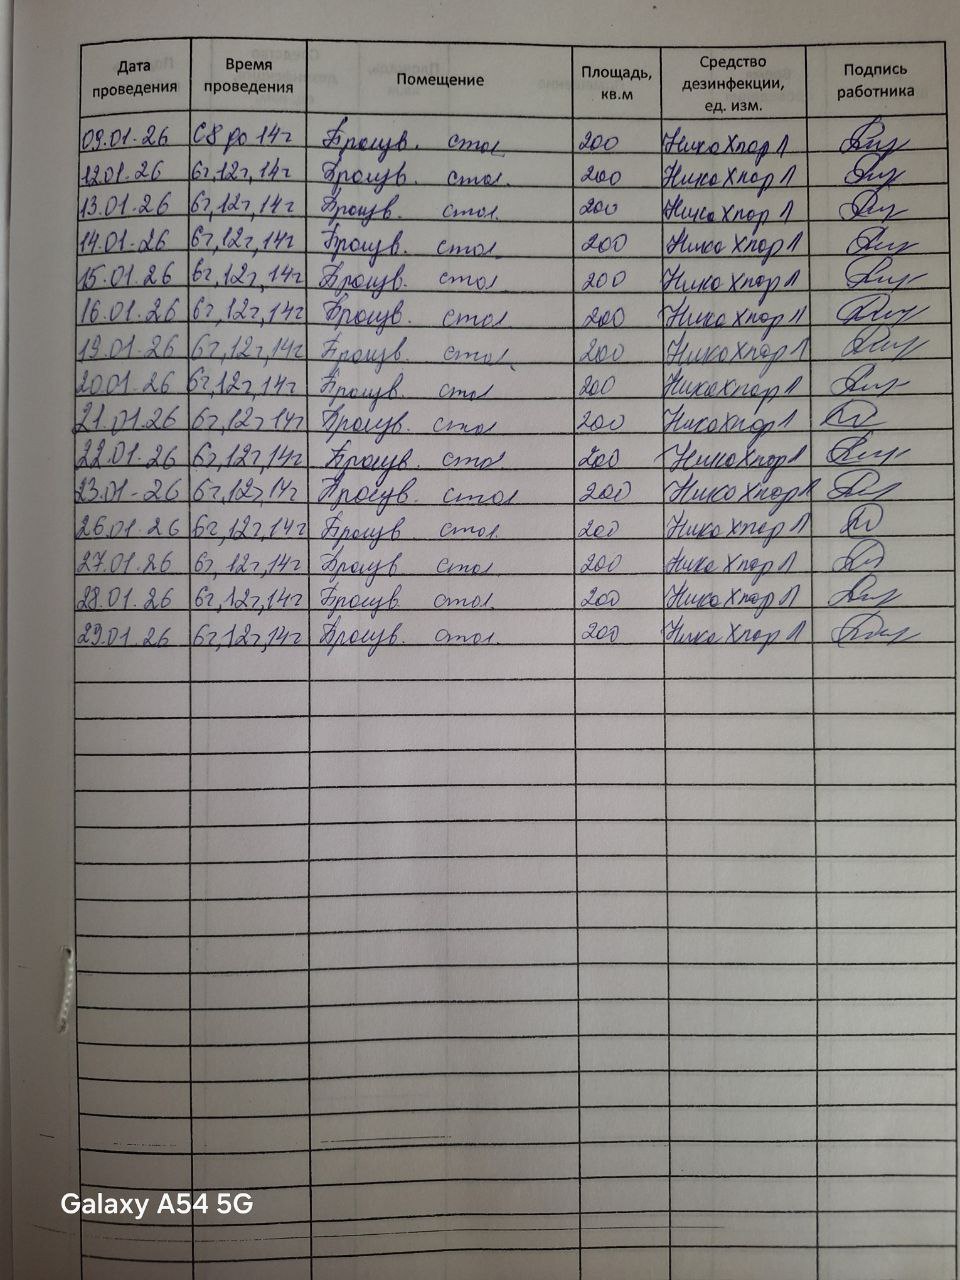 Дата проведения Время проведения Помещение Площадь, кв.м Средство дезинфекции, ед. изм. Подпись работника
09.01.26 с 8 до 14ч Произв. стол 200 НикаХлор Л
12.01.26 6ч,12ч,14ч Произв. стол. 200 НикаХлор Л
13.01.26 6ч,12ч,14ч Произв. стол. 200 НикаХлор Л
14.01.26 6ч,12ч,14ч Произв. стол. 200 Ника Хлор Л
15.01.26 6ч,12ч,14ч Произв. стол 200 Ника Хлор Л
16.01.26 6ч,12ч,14ч Произв. стол 200 Ника Хлор Л
19.01.26 6ч,12ч,14ч Произв. стол. 200 НикаХлор Л
20.01.26 6ч,12ч,14ч Произв. стол 200 НикаХлор Л
21.01.26 6ч,12ч,14ч Произв. стол 200 НикаХлор Л
22.01.26 6ч,12ч,14ч Произв. стол 200 НикаХлор Л
23.01-26 6ч,12ч,14ч Произв. стол 200 Ника Хлор Л
26.01.26 6ч,12ч,14ч Произв. стол. 200 Ника Хлор Л
27.01.26 6ч,12ч,14ч Произв стол. 200 Ника Хлор Л
28.01.26 6ч,12ч,14ч Произв. стол. 200 Ника Хлор Л
29.01.26 6ч,12ч,14ч Произв. стол. 200 Ника Хлор Л
Galaxy A54 5G